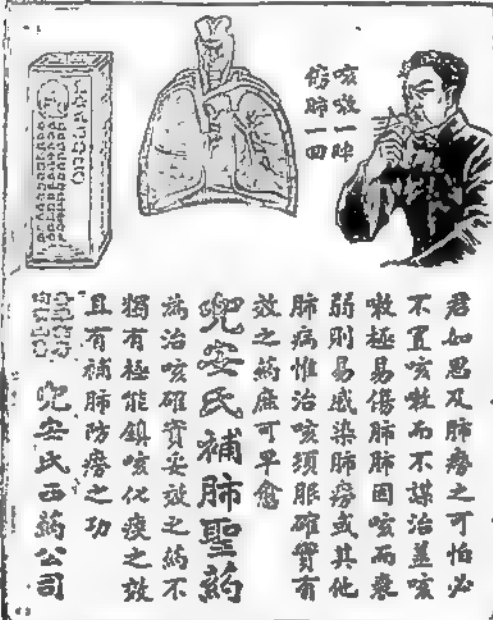 咳嗽一聲
傷肺一回
君如思及肺癆之可怕必
不置咳嗽而不謀治蓋咳
嗽極易傷肺肺因咳而衰
弱則易感染肺癆或其他
肺病惟治咳須服確實有
效之藥庶可早愈
兜安氏補肺聖藥
為治咳確實妥效之藥不
獨有極能鎮咳化痰之效
且有補肺防癆之功
兜安氏西藥公司